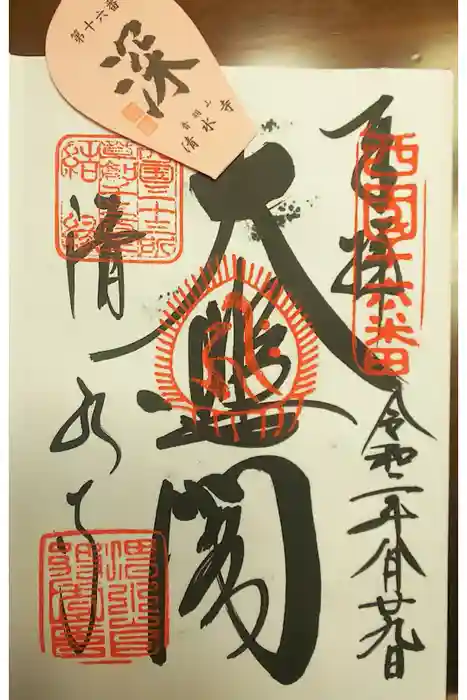 第十六番
深
音羽山
清水寺
奉拝
西国十六番
令和二年八月廿九日
大悲閣
清水寺
結縁